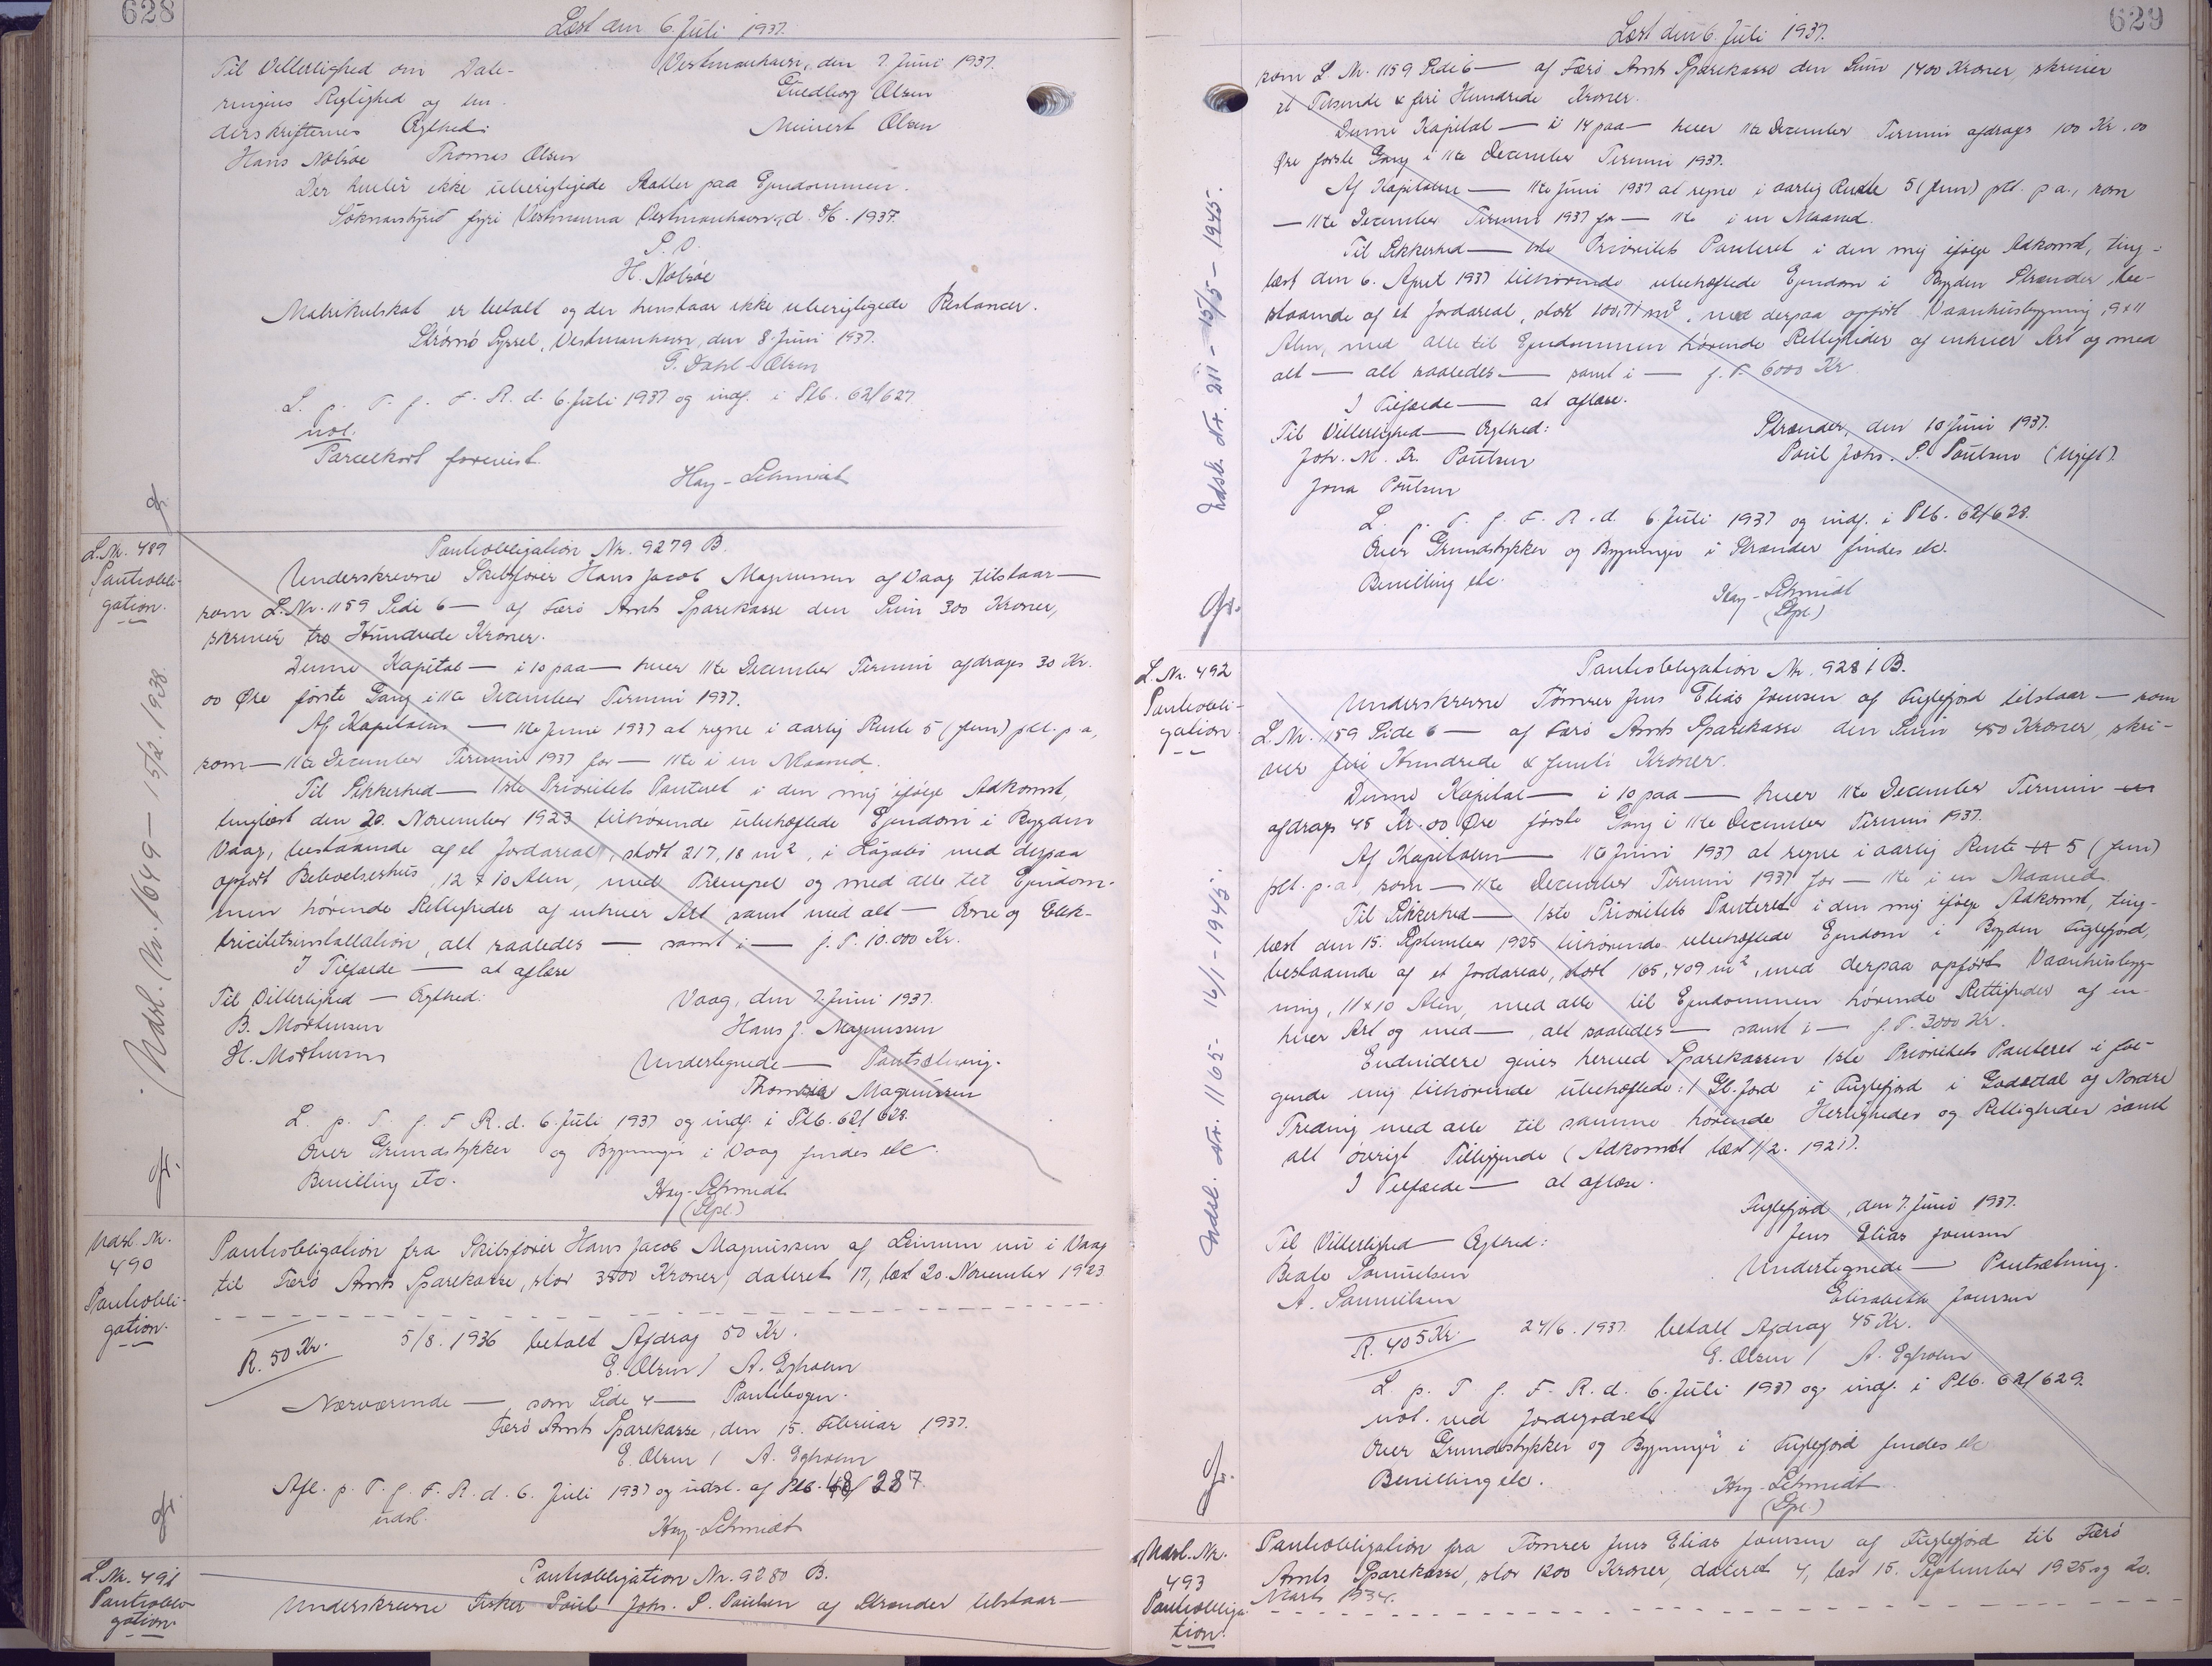 628
Læst den 6. Juli 1937.
Til Vitterlighed om Date-
ringens Rigtighed og Un-
derskrifternes Ægthed:
Hans Nolsøe Thomas Olsen
Vestmanhavn, den 7. Juni 1937.
Olsen
Meinert Olsen
Der hviler ikke uberigtigede Skatter paa Ejendommen.
Sóknarstýrið fyri Vestmanna Vestmanhavn, d. 8/6 - 1937.
H. Nolsøe
Matrikulskat er betalt og der henstaar ikke uberigtigede Restancer.
Strømø Syssel, Vestmanhavn, den 8. Juni 1937.
G. Dahl-Olsen
L. p. T. f. F. R. d. 6. Juli 1937 og indf. i Ptb. 62/627.
not.
Parcelkort forevist.
Hay-Schmidt
L. Nr. 489
Pantobli-
gation.
Udsl. Nr. 1649 - 15/12. 1938.
Pantobligation Nr. 9279 B.
Underskrevne Skibsfører Hans Jacob Magnussen af Vaag tilstaar —
som L. Nr. 1159 Side 6 — af Færø Amts Sparekasse den Sum 300 Kroner,
skriver tre Hundrede Kroner.
Denne Kapital — i 10 paa — hver 11te December Termin afdrages 30 Kr.
00 Øre første Gang i 11te December Termin 1937.
Af Kapitalen — 11te Juni 1937 at regne i aarlig Rente 5 (fem) pCt. p a,
som — 11te December Termin 1937 for — 11te i en Maaned.
Til Sikkerhed — 1ste Prioritets Panteret i den mig ifølge Adkomst,
tinglæst den 20. November 1923 tilhørende ubehæftede Ejendom i Bygden
Vaag, bestaaende af et Jordareal, stort 217,18 m², i med derpaa
opført Beboelseshus, 12 x 10 Alen, med og med alle til Ejendom-
men hørende Rettigheder af enhver Art samt med alt — Ovne og Elek-
tricitetsinstallation, alt saaledes — samt i — f. T. 10.000 Kr.
I Tilfælde — at aflæse
Til Vitterlighed — Ægthed:
B. Mortensen
H. Mortensen
Vaag, den 7. Juni 1937.
Hans J. Magnussen
Undertegnede — Pantsætning.
Magnussen
L. p. T. f. F. R. d. 6. Juli 1937 og indf. i Ptb. 62/628.
Over Grundstykker og Bygninger i Vaag findes etc.
Bevilling etc.
Hay-Schmidt
Udsl. Nr.
490
Pantobli-
gation.
Pantobligation fra Skibsfører Hans Jacob Magnussen af nu i Vaag
til Færø Amts Sparekasse, stor Kroner, dateret 17, læst 20. November 1923
R. 50 Kr.
5/8. 1936 betalt Afdrag 50 Kr.
E. Olsen / A. Egholm
Nærværende — som Side 4 — Pantebogen.
Færø Amts Sparekasse, den 15. Februar 1937.
E. Olsen / A. Egholm
Afl. p. T. f. F. R. d. 6. Juli 1937 og udsl. af Ptb. 48/287.
udsl.
Hay-Schmidt
L. Nr. 491
Pantobli-
gation.
Pantobligation Nr. 9280 B.
Underskrevne Fisker Poul Johs. P. Poulsen af Strænder tilstaar —
629
Læst den 6. Juli 1937.
Udsl. Nr. 211 - 15/5 - 1945.
som L. Nr. 1159 Side 6 — af Færø Amts Sparekasse den Sum 1400 Kroner, skriver
et Tusende & firi Hundrede Kroner.
Denne Kapital — i 14 paa — hver 11te December Termin afdrages 100 Kr. 00
Øre første Gang i 11te December Termin 1937.
Af Kapitalen — 11te Juni 1937 at regne i aarlig Rente 5 (fem) pCt. p a., som
— 11te December Termin 1937 for — 11te i en Maaned.
Til Sikkerhed — 1ste Prioritets Panteret i den mig ifølge Adkomst, ting-
læst den 6. April 1937 tilhørende ubehæftede Ejendom i Bygden Strænder, be-
staaende af et Jordareal, stort 100,71 m², med derpaa opført Vaanhusbygning, 9 x 11
Alen, med alle til Ejendommen hørende Rettigheder af enhver Art og med
alt — alt saaledes — samt i — f. T. 6000 Kr.
I Tilfælde — at aflæse.
Til Vitterlighed — Ægthed:
Joh. M. Fr. Poulsen
Jona Poulsen
Strænder, den 10 Juni 1937.
Poul Johs. P. Poulsen (Ugift).
L. p. T. f. F. R. d. 6. Juli 1937 og indf. i Ptb. 62/628.
Over Grundstykker og Bygninger i Strænder findes etc.
Bevilling etc.
Hay-Schmidt
L. Nr. 492
Pantobli-
gation.
Udsl. Nr. 1165 - 16/1 - 1945.
Pantobligation Nr. 9281 B.
Underskrevne Tømrer Jens Elias Joensen af Fuglefjord tilstaar — som
L. Nr. 1159 Side 6 — af Færø Amts Sparekasse den Sum 450 Kroner, skri-
ver firi Hundrede & femti Kroner.
Denne Kapital — i 10 paa — hver 11te December Termin
afdrages 45 Kr. 00 Øre første Gang i 11te December Termin 1937.
Af Kapitalen — 11te Juni 1937 at regne i aarlig Rente 5 (fem)
pCt. p. a, som — 11te December Termin 1937 for — 11te i en Maaned.
Til Sikkerhed — 1ste Prioritets Panteret i den mig ifølge Adkomst, ting-
læst den 15. September 1925 tilhørende ubehæftede Ejendom i Bygden Fuglefjord,
bestaaende af et Jordareal, stort 165,409 m², med derpaa opført Vaanhusbyg-
ning, 11 x 10 Alen, med alle til Ejendommen hørende Rettigheder af en-
hver Art og med —, alt saaledes — samt i — f. T. 3000 Kr.
Endvidere gives herved Sparekassen 1ste Prioritets Panteret i føl-
gende mig tilhørende ubehæftede: Jord i Fuglefjord i og Nordre
Treding med alle til samme hørende Herligheder og Rettigheder samt
alt øvrigt Tilliggende (Adkomst læst 1/2. 1921).
I Tilfælde — at aflæse.
Fuglefjord, den 7. Juni 1937.
Jens Elias Joensen
Til Vitterlighed — Ægthed:
Beate Samuelsen
A. Samuelsen
Undertegnede — Pantsætning.
Elisabeth Joensen
R. 405 Kr.
24/6. 1937. betalt Afdrag 45 Kr.
E. Olsen / A. Egholm
L. p. T. f. F. R. d. 6. Juli 1937 og indf. i Ptb. 62/629.
not. ved Jordegodset
Over Grundstykker og Bygninger i Fuglefjord findes etc
Bevilling etc.
Hay-Schmidt
Udsl. Nr.
493
Pantobliga-
tion.
Pantobligation fra Tømrer Jens Elias Joensen af Fuglefjord til Færø
Amts Sparekasse, stor 1200 Kroner, dateret 4, læst 15. September 1925 og 20.
Marts 1934.